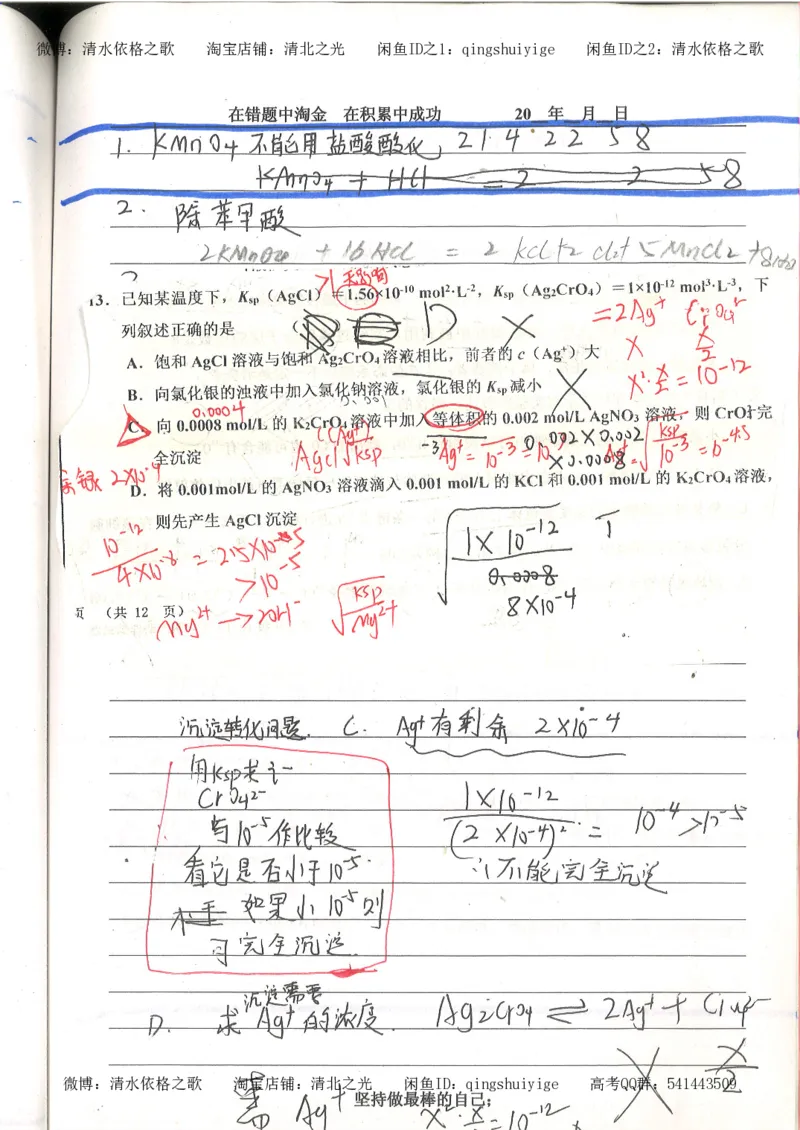 微博：清水依格之歌 淘宝店铺：清北之光 闲鱼ID之1：qingshuiyige 闲鱼ID之2：清水依格之歌
在错题中淘金 在积累中成功 20 年 月 日
1. KMnO4 不能用盐酸酸化, 2 1 4 2 2 5 8
KMnO4 + HCl = 2 2 58
2. 除苯甲酸
2KMnO4 + 16HCl = 2 KCl+2 Cl2+5MnCl2+8H2O
13. 已知某温度下，Ksp（AgCl）＝1.56×10⁻¹⁰ mol²·L⁻²，Ksp（Ag₂CrO₄）＝1×10⁻¹² mol³·L⁻³，下
列叙述正确的是 （ ） D ×
=2Ag⁺ CrO₄²⁻
A．饱和 AgCl 溶液与饱和 Ag₂CrO₄ 溶液相比，前者的 c（Ag⁺）大
X X/2
B．向氯化银的浊液中加入氯化钠溶液，氯化银的 Ksp 减小 ×
X²·X/2 = 10⁻¹²
0.0004
C．向 0.0008 mol/L 的 K₂CrO₄ 溶液中加入等体积的 0.002 mol/L AgNO₃ 溶液，则 CrO₄²⁻完
全沉淀
AgCl √Ksp
0.002×0.002
×0.0008
余银 2×10⁻⁴
D．将 0.001mol/L 的 AgNO₃ 溶液滴入 0.001 mol/L 的 KCl 和 0.001 mol/L 的 K₂CrO₄ 溶液，
则先产生 AgCl 沉淀
10⁻¹²/4×10⁻⁸ = 2.5×10⁻⁵
>10⁻⁵
√(1×10⁻¹²/0.0008
8×10⁻⁴)
页 （共 12 页）
Mg²⁺ → 2OH⁻ √(Ksp/Mg²⁺)
沉淀转化问题. C. Ag⁺有剩余 2×10⁻⁴
用Ksp求
CrO₄²⁻
与10⁻⁵作比较
看它是否小于10⁻⁵.
如果小10⁻⁵则
可完全沉淀.
1×10⁻¹²/(2×10⁻⁴)² = 10⁻⁴>10⁻⁵
∴不能完全沉淀
沉淀需要
D. 求Ag⁺的浓度. Ag₂CrO₄ ⇌ 2Ag⁺ + CrO₄²⁻
X X/2
微博：清水依格之歌 淘宝店铺：清北之光 闲鱼ID：qingshuiyige 高考QQ群：541443509
坚持做最棒的自己；
需 Ag⁺ X²·X/2=10⁻¹²